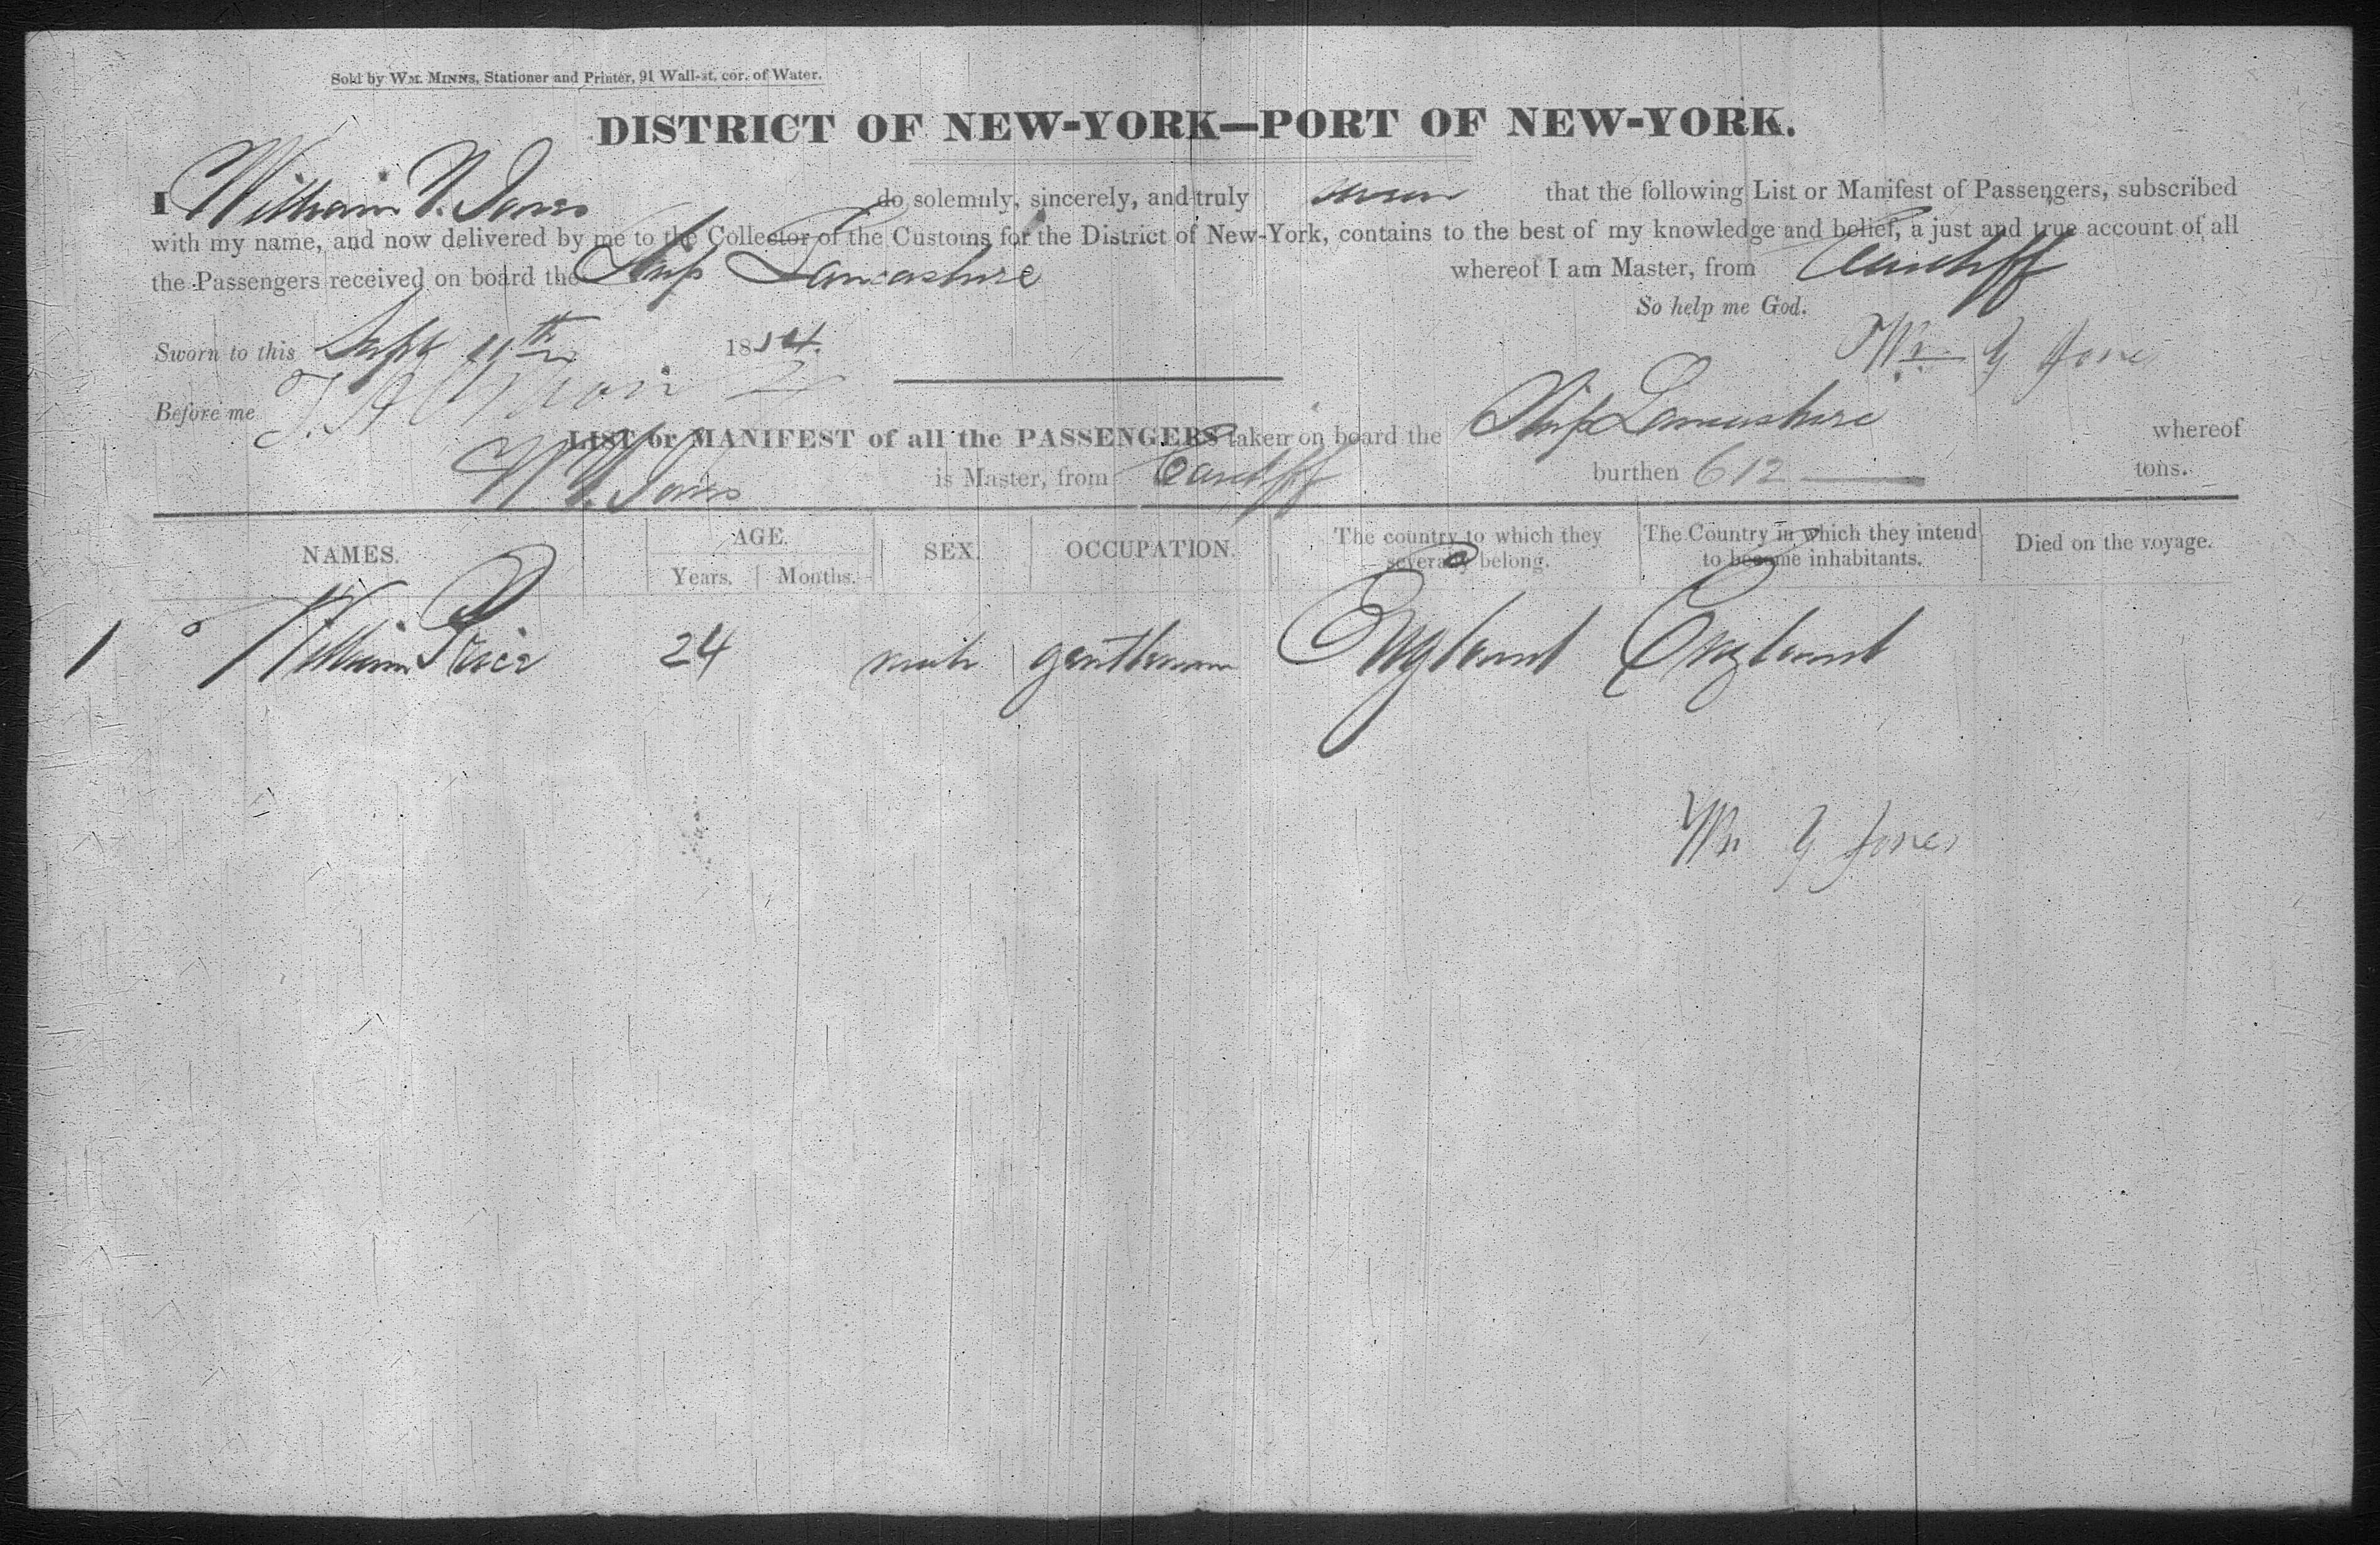 Sold by WM. MINNS, Stationer and Printer, 91 Wall-st. cor. of Water.
DISTRICT OF NEW-YORK—PORT OF NEW-YORK.
I William Jones do solemnly, sincerely, and truly swear that the following List or Manifest of Passengers, subscribed
with my name, and now delivered by me to the Collector of the Customs for the District of New-York, contains to the best of my knowledge and belief, a just and true account of all
the Passengers received on board the Ship Lancashire whereof I am Master, from Cardiff
So help me God.
Sworn to this Sept 11th 1854. Wm G Jones
Before me
LIST or MANIFEST of all the PASSENGERS taken on board the Ship Lancashire whereof
W. Jones is Master, from Cardiff burthen 612 tons.
NAMES. AGE. SEX. OCCUPATION. The country to which they severally belong. The Country in which they intend to become inhabitants. Died on the voyage.
Years. Months.
1 William Price 24 male gentleman England England
Wm G Jones